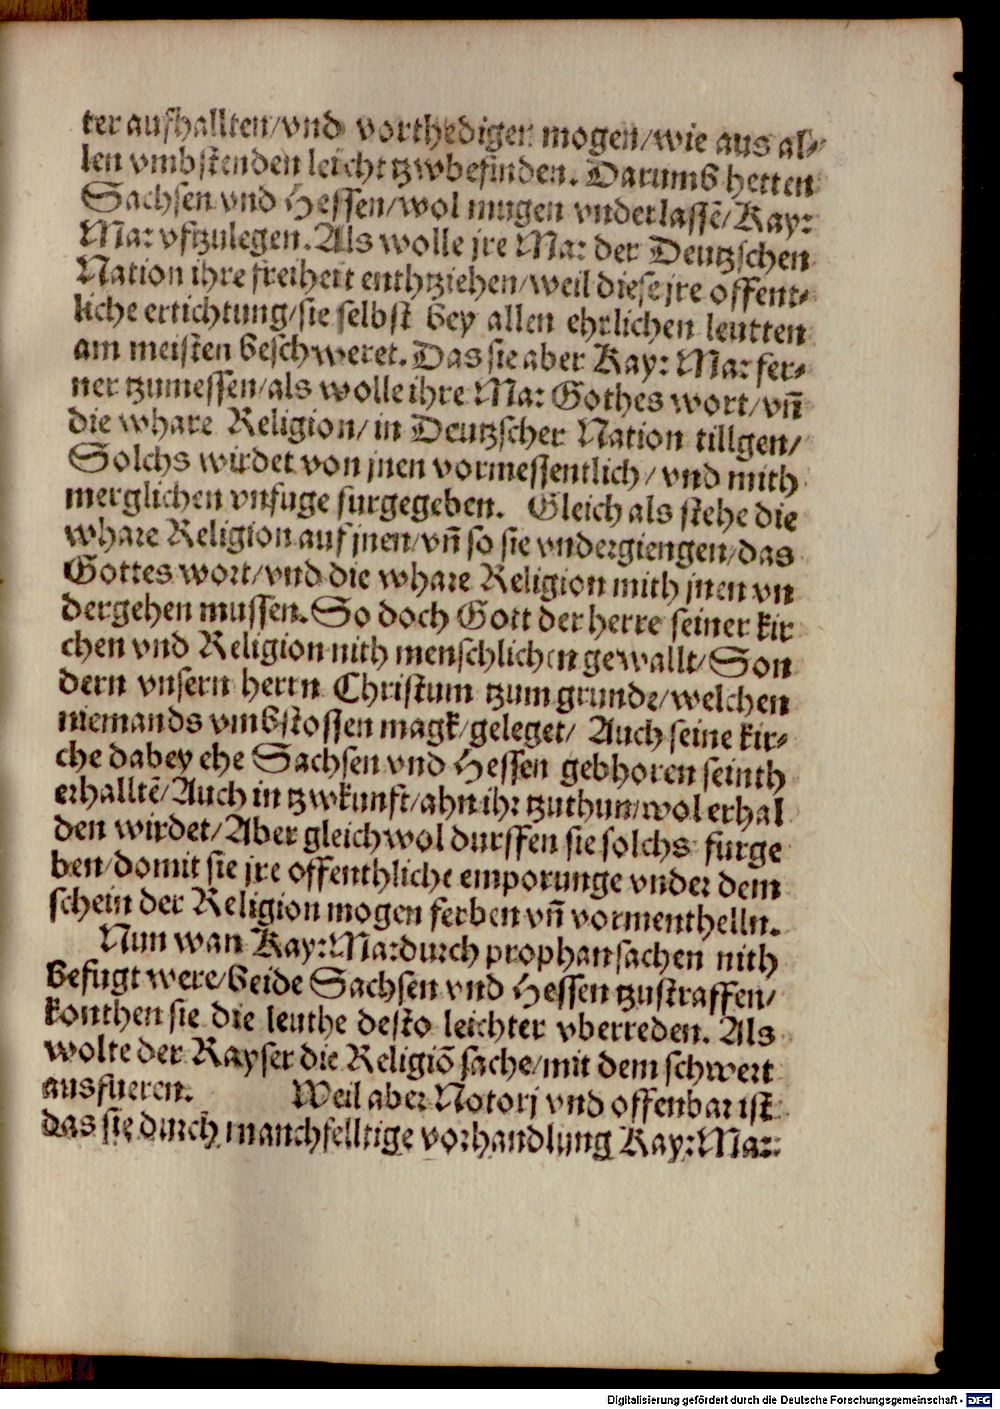 ter aufhallten/vnd vorthediger mogen/wie aus al⸗
len vmbstenden leicht tzwbefinden. Darumb hetten
Sachsen vnd Hessen/wol mugen vnderlassē/Kay:
Ma: vftzulegen. Als wolle jre Ma: der Deutzschen
Nation ihre freiheit enthtziehen/weil diese jre offent⸗
liche ertichtung/sie selbst bey allen ehrlichen leutten
am meisten beschweret. Das sie aber Kay: Ma: fer⸗
ner tzumessen/als wolle ihre Ma: Gothes wort/vn̄
die whare Religion/in Deutzscher Nation tillgen/
Solchs wirdet von jnen vormessentlich/vnd mith
merglichen vnfuge furgegeben. Gleich als stehe die
whare Religion auf jnen/vn̄ so sie vndergiengen/das
Gottes wort/vnd die whare Religion mith jnen vn
dergehen mussen. So doch Gott der herre seiner kir
chen vnd Religion nith menschlichen gewallt/Son
dern vnsern herrn Christum tzum grunde/welchen
niemands vmbstossen magk/geleget/ Auch seine kir⸗
che dabey ehe Sachsen vnd Hessen gebhoren seinth
erhalltē/Auch in tzwkunft/ahn ihr tzuthun/wol erhal
den wirdet/Aber gleichwol durffen sie solchs furge
ben/domit sie jre offenthliche emporunge vnder dem
schein der Religion mogen ferben vn̄ vormenthelln.
Nun wan Kay: Ma: durch prophan sachen nith
befugt were/beide Sachsen vnd Hessen tzustraffen/
konthen sie die leuthe desto leichter vberreden. Als
wolte der Kayser die Religiō sache/mit dem schwert
ausfueren. Weil aber Notorj vnd offenbar ist
das sie durch manchfelltige vorhandlung Kay: Ma:
Digitalisierung gefördert durch die Deutsche Forschungsgemeinschaft - DFG